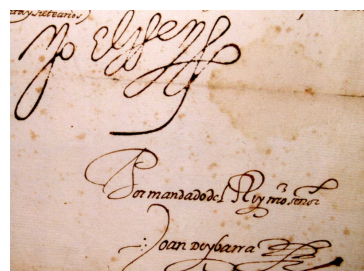 y siete años)
Yo el Rey
Por mandado del Rey nro señor
Joan de ybarra